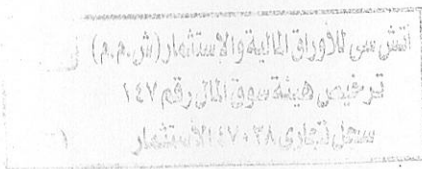 اتش سى للأوراق المالية والاستثمار (ش.م.م)
ترخيص هيئة سوق المال رقم ١٤٧
سجل تجارى ٤٧٠٣٨ الاستثمار